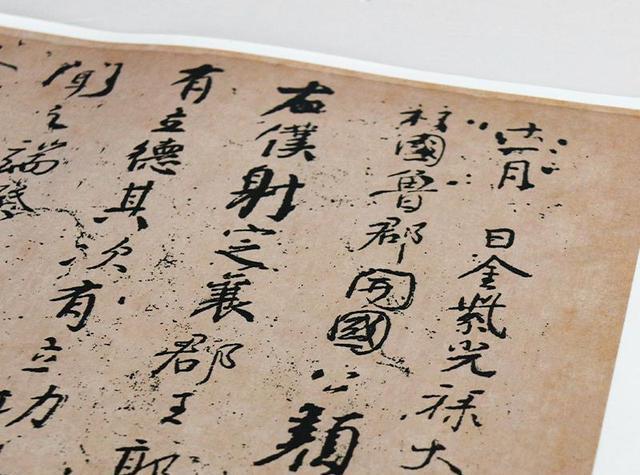 十一月 日金紫光祿大
柱國魯郡開國公顏
右僕射定襄郡王郭
有立德其次有立功
聞之端揆